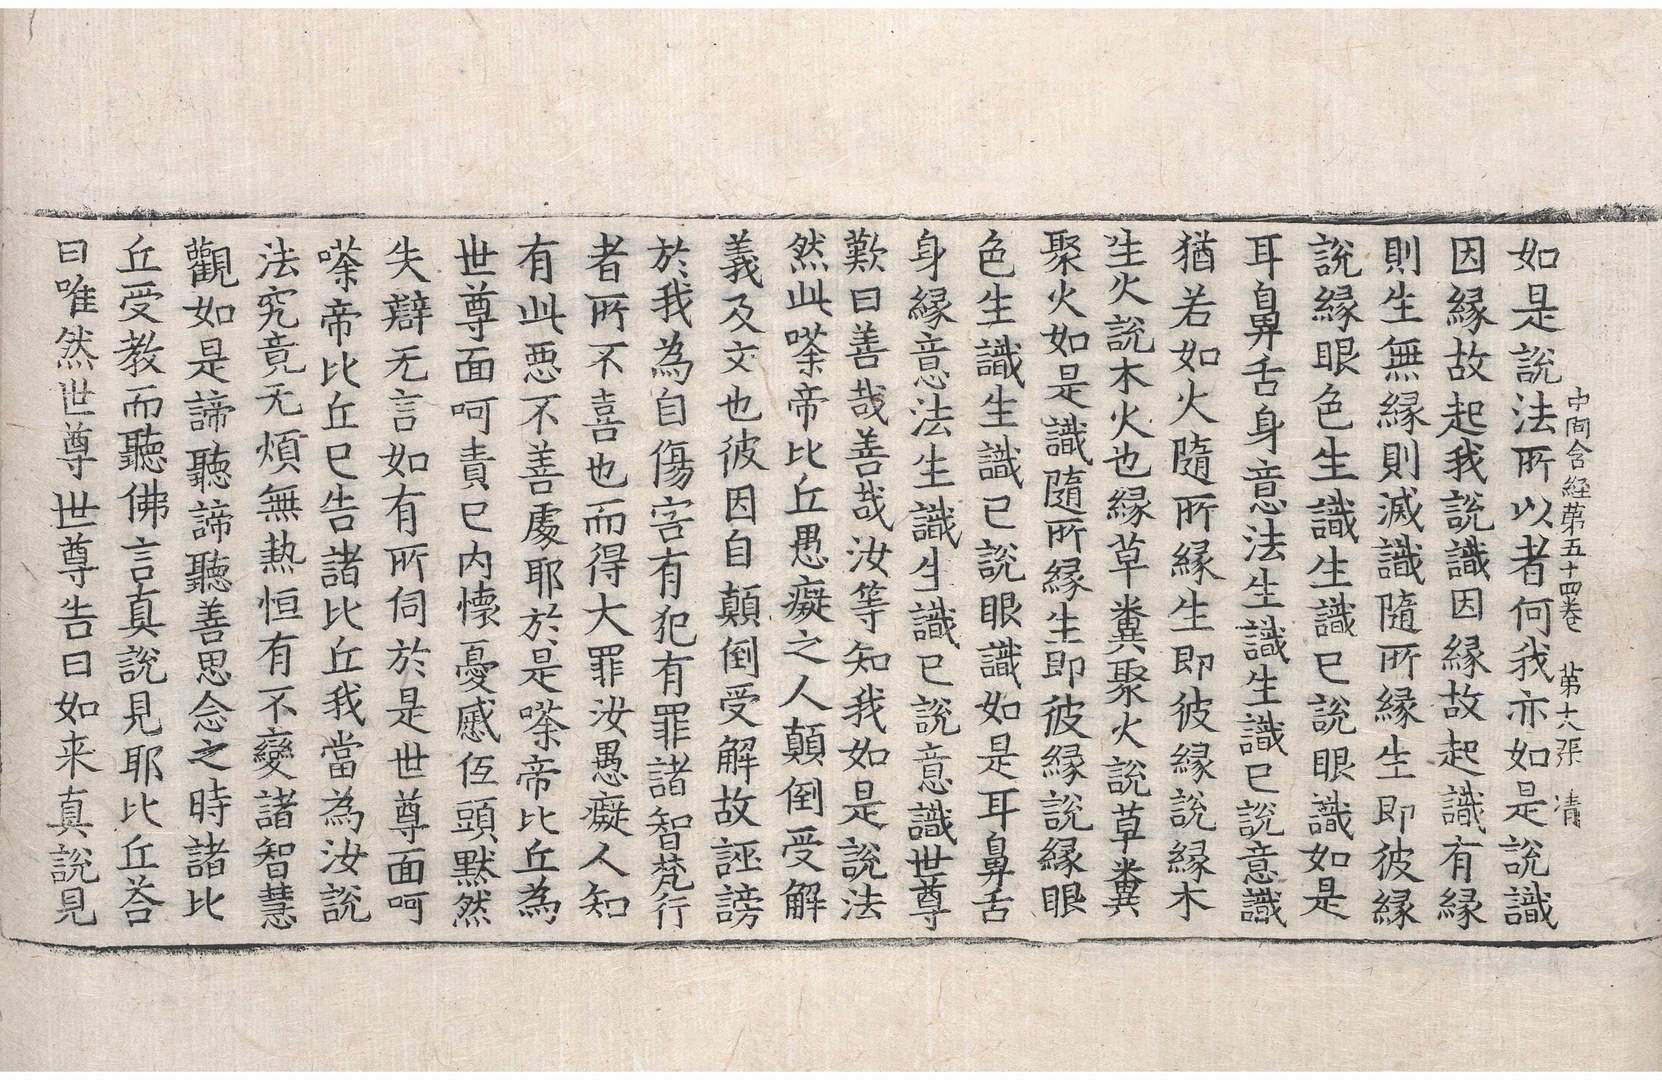 中阿含経第五十四巻　第六張　清
如是說法所以者何我亦如是說識
因縁故起我說識因縁故起識有縁
則生無縁則滅識隨所縁生即彼縁
說縁眼色生識生識已說眼識如是
耳鼻舌身意法生識生識已說意識
猶若如火隨所縁生即彼縁說縁木
生火說木火也縁草糞聚火說草糞
聚火如是識隨所縁生即彼縁說縁眼
色生識生識已說眼識如是耳鼻舌
身縁意法生識生識已說意識世尊
歎曰善哉善哉汝等知我如是說法
然此嗏帝比丘愚癡之人顛倒受解
義及文也彼因自顛倒受解故誣謗
於我為自傷害有犯有罪諸智梵行
者所不喜也而得大罪汝愚癡人知
有此惡不善處耶於是嗏帝比丘為
世尊面呵責已内懷憂慼低頭默然
失辯无言如有所伺於是世尊面呵
嗏帝比丘已告諸比丘我當為汝說
法究竟无煩無熱恒有不變諸智慧
觀如是諦聽諦聽善思念之時諸比
丘受教而聽佛言真說見耶比丘荅
曰唯然世尊世尊告曰如来真說見